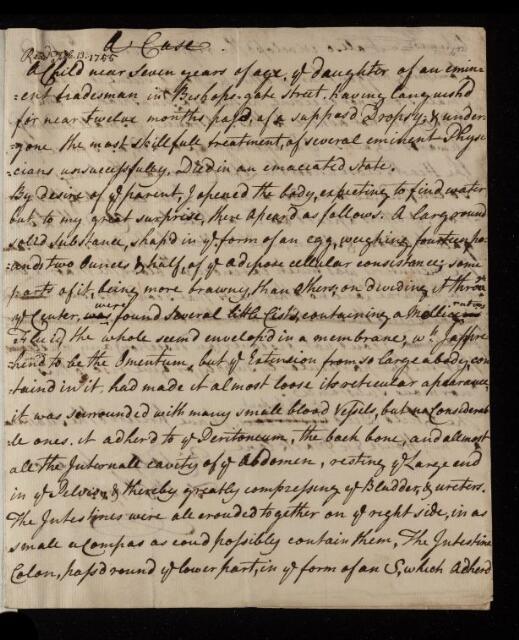 A Case
Read Feb. 13. 1755
A Child near seven years of age, ye daughter of an emin-
=ent tradesman in Bishops-gate street, having languish'd
for near twelve months past, of a suppos'd Dropsy, & under-
gone the most skilfull treatment, of several eminent Physi-
=cians unsuccessfulley, Died in an emaciated state.
By desire of ye parent, I opened the body, expecting to find water
but to my great surprise, there apear'd as follows. A larg round
solid substance, shap'd in ye form of an egg, weighing fourteen po-
=ands two Ounces & half, of ye adipose cellular consistance; some
parts of it, being more brawny, than others; on dividing it throu
ye Center, were found several little Cists, containing a
Fluid, the whole seem'd envelop'd in a membrane, wch I appre
hend to be the Omentum, but ye Extension from so large a body, con
tain'd in it, had made it almost loose its reticular apearance,
it was surrounded with many small blood vessels, but no Considerab
le ones. it adher'd to ye Peritoneum, the back bone, and allmost
all the Internall cavity of ye abdomen, resting ye Large end
in ye Pelvis, & thereby greatly compressing ye Bladder, & ureters.
The Intestines were all crouded together on ye right side, in as
small a Compas as coud possibly contain them, The Intestine
Colon, pass'd round ye lower part, in ye form of an S, which Adher'd